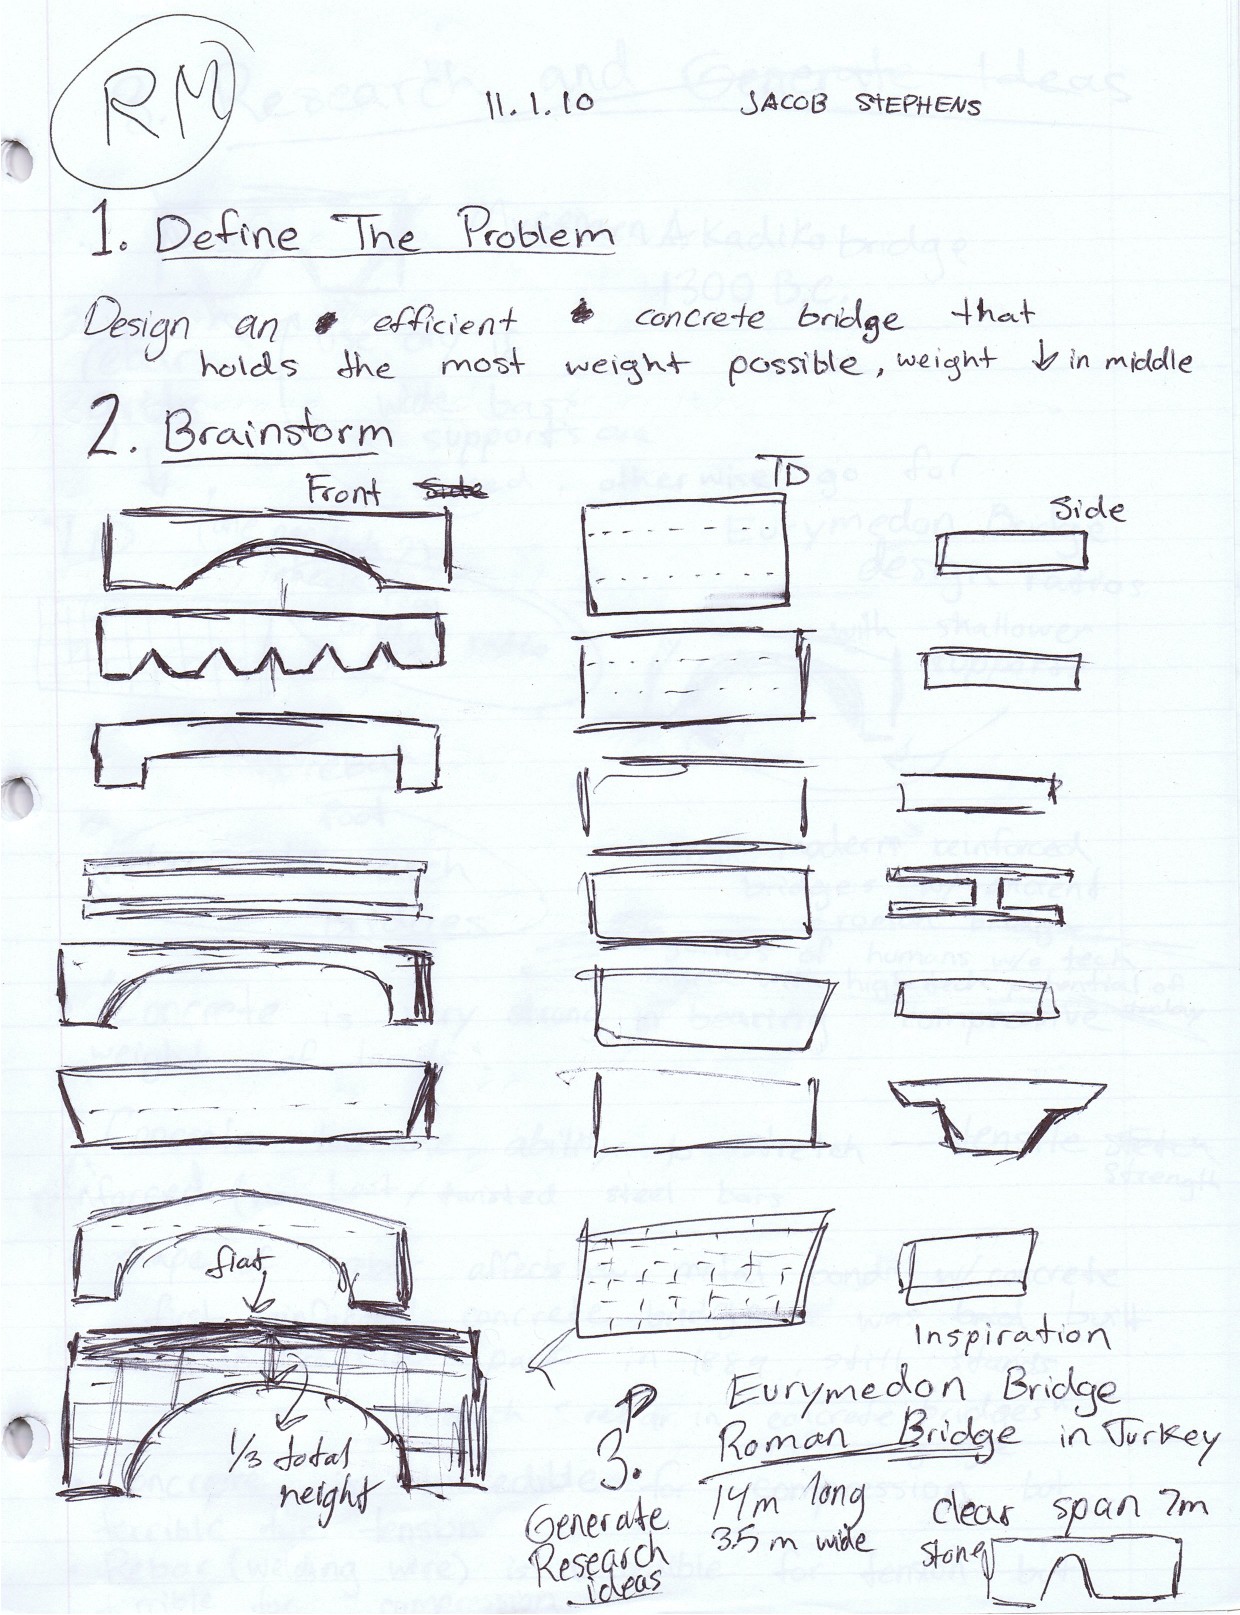 RM
11.1.10 JACOB STEPHENS
1. Define The Problem
Design an efficient concrete bridge that
holds the most weight possible, weight ↓ in middle
2. Brainstorm
Front Side
TD
Side
flat
1/3 total
height
Inspiration
Eurymedon Bridge
Roman Bridge in Turkey
14m long
3.5 m wide
clear span 7m
stone
3.
Generate
Research
ideas